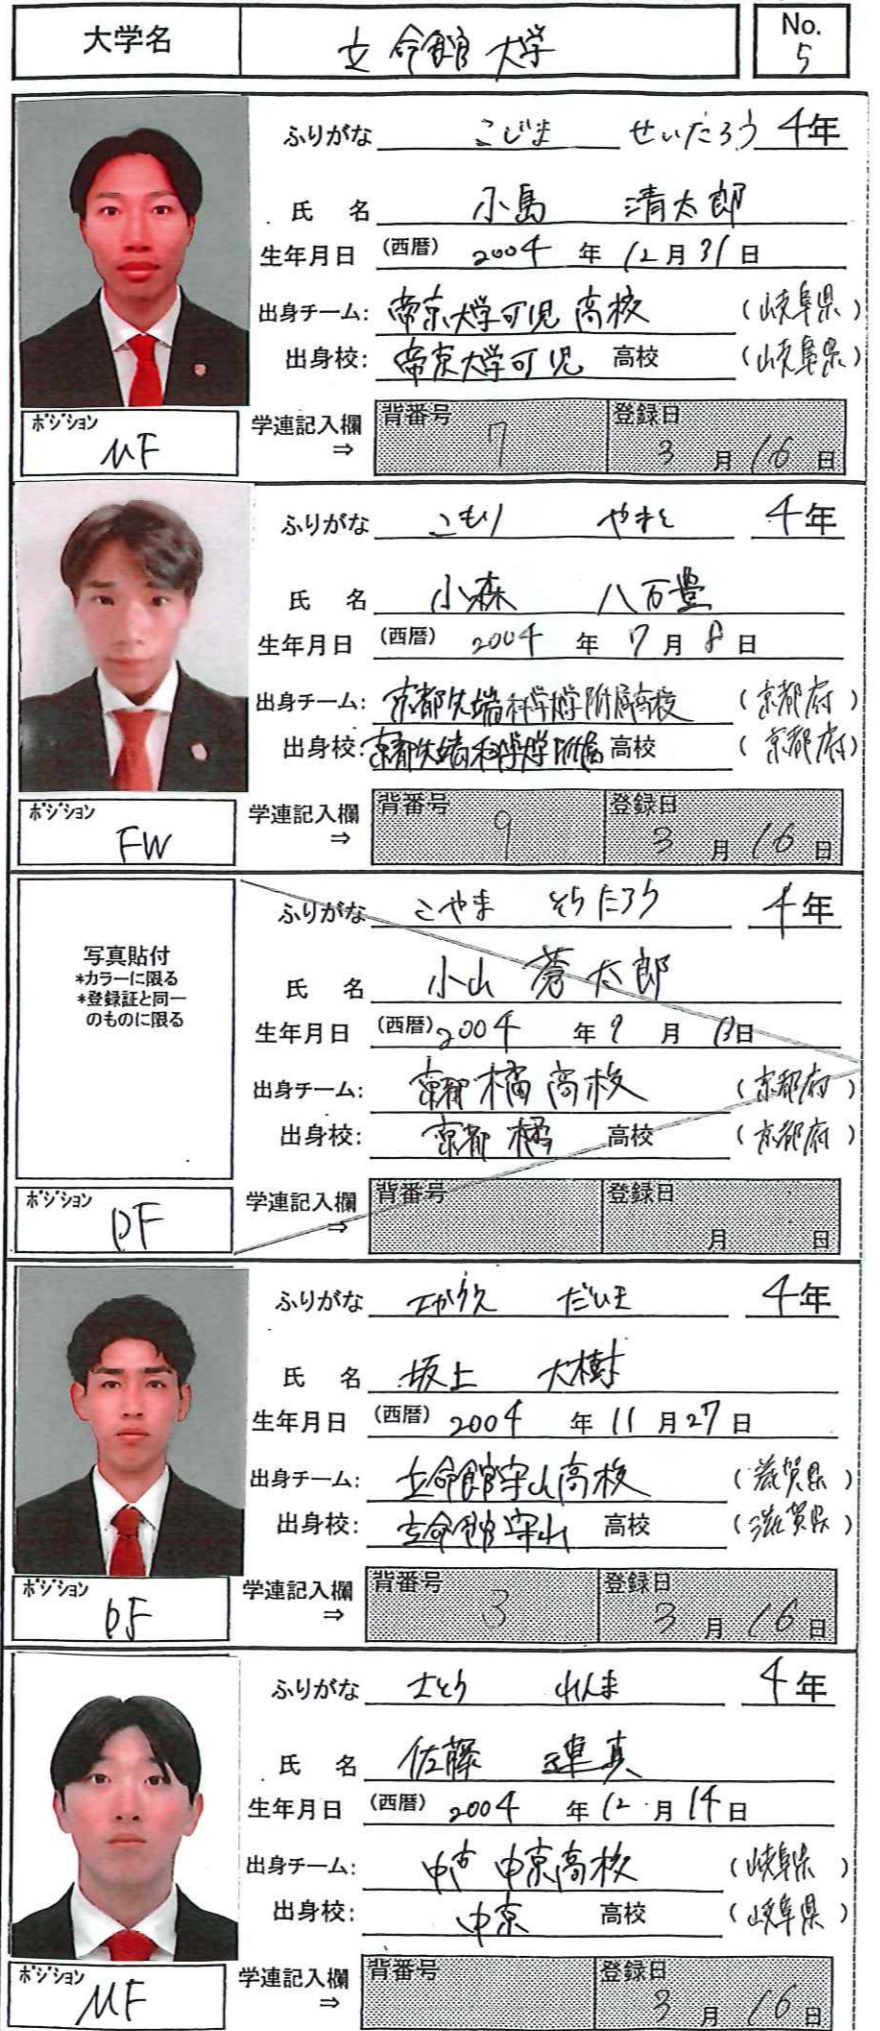 大学名 立命館大学 No. 5
ふりがな こじま せいたろう 4年
氏 名 小島 清太郎
生年月日 (西暦) 2004 年 12月 31日
出身チーム: 帝京大学可児高校 (岐阜県)
出身校: 帝京大学可児 高校 (岐阜県)
ポジション MF 学連記入欄⇒ 背番号 7 登録日 3月16日
ふりがな こもり やまと 4年
氏 名 小森 八百豊
生年月日 (西暦) 2004 年 7月 8日
出身チーム: 京都先端科学大学附属高校 (京都府)
出身校: 京都先端科学大学附属 高校 (京都府)
ポジション FW 学連記入欄⇒ 背番号 9 登録日 3月16日
写真貼付
*カラーに限る
*登録証と同一
のものに限る
ふりがな こやま そうたろう 4年
氏 名 小山 蒼太郎
生年月日 (西暦) 2004 年 9月 13日
出身チーム: 京都橘高校 (京都府)
出身校: 京都橘 高校 (京都府)
ポジション DF 学連記入欄⇒ 背番号 登録日 月 日
ふりがな さかうえ だいき 4年
氏 名 坂上 大樹
生年月日 (西暦) 2004 年 11月27日
出身チーム: 立命館守山高校 (滋賀県)
出身校: 立命館守山 高校 (滋賀県)
ポジション DF 学連記入欄⇒ 背番号 3 登録日 3月16日
ふりがな さとう れんま 4年
氏 名 佐藤 蓮真
生年月日 (西暦) 2004 年 12月 14日
出身チーム: 中京高校 (岐阜県)
出身校: 中京 高校 (岐阜県)
ポジション MF 学連記入欄⇒ 背番号 登録日 3月16日